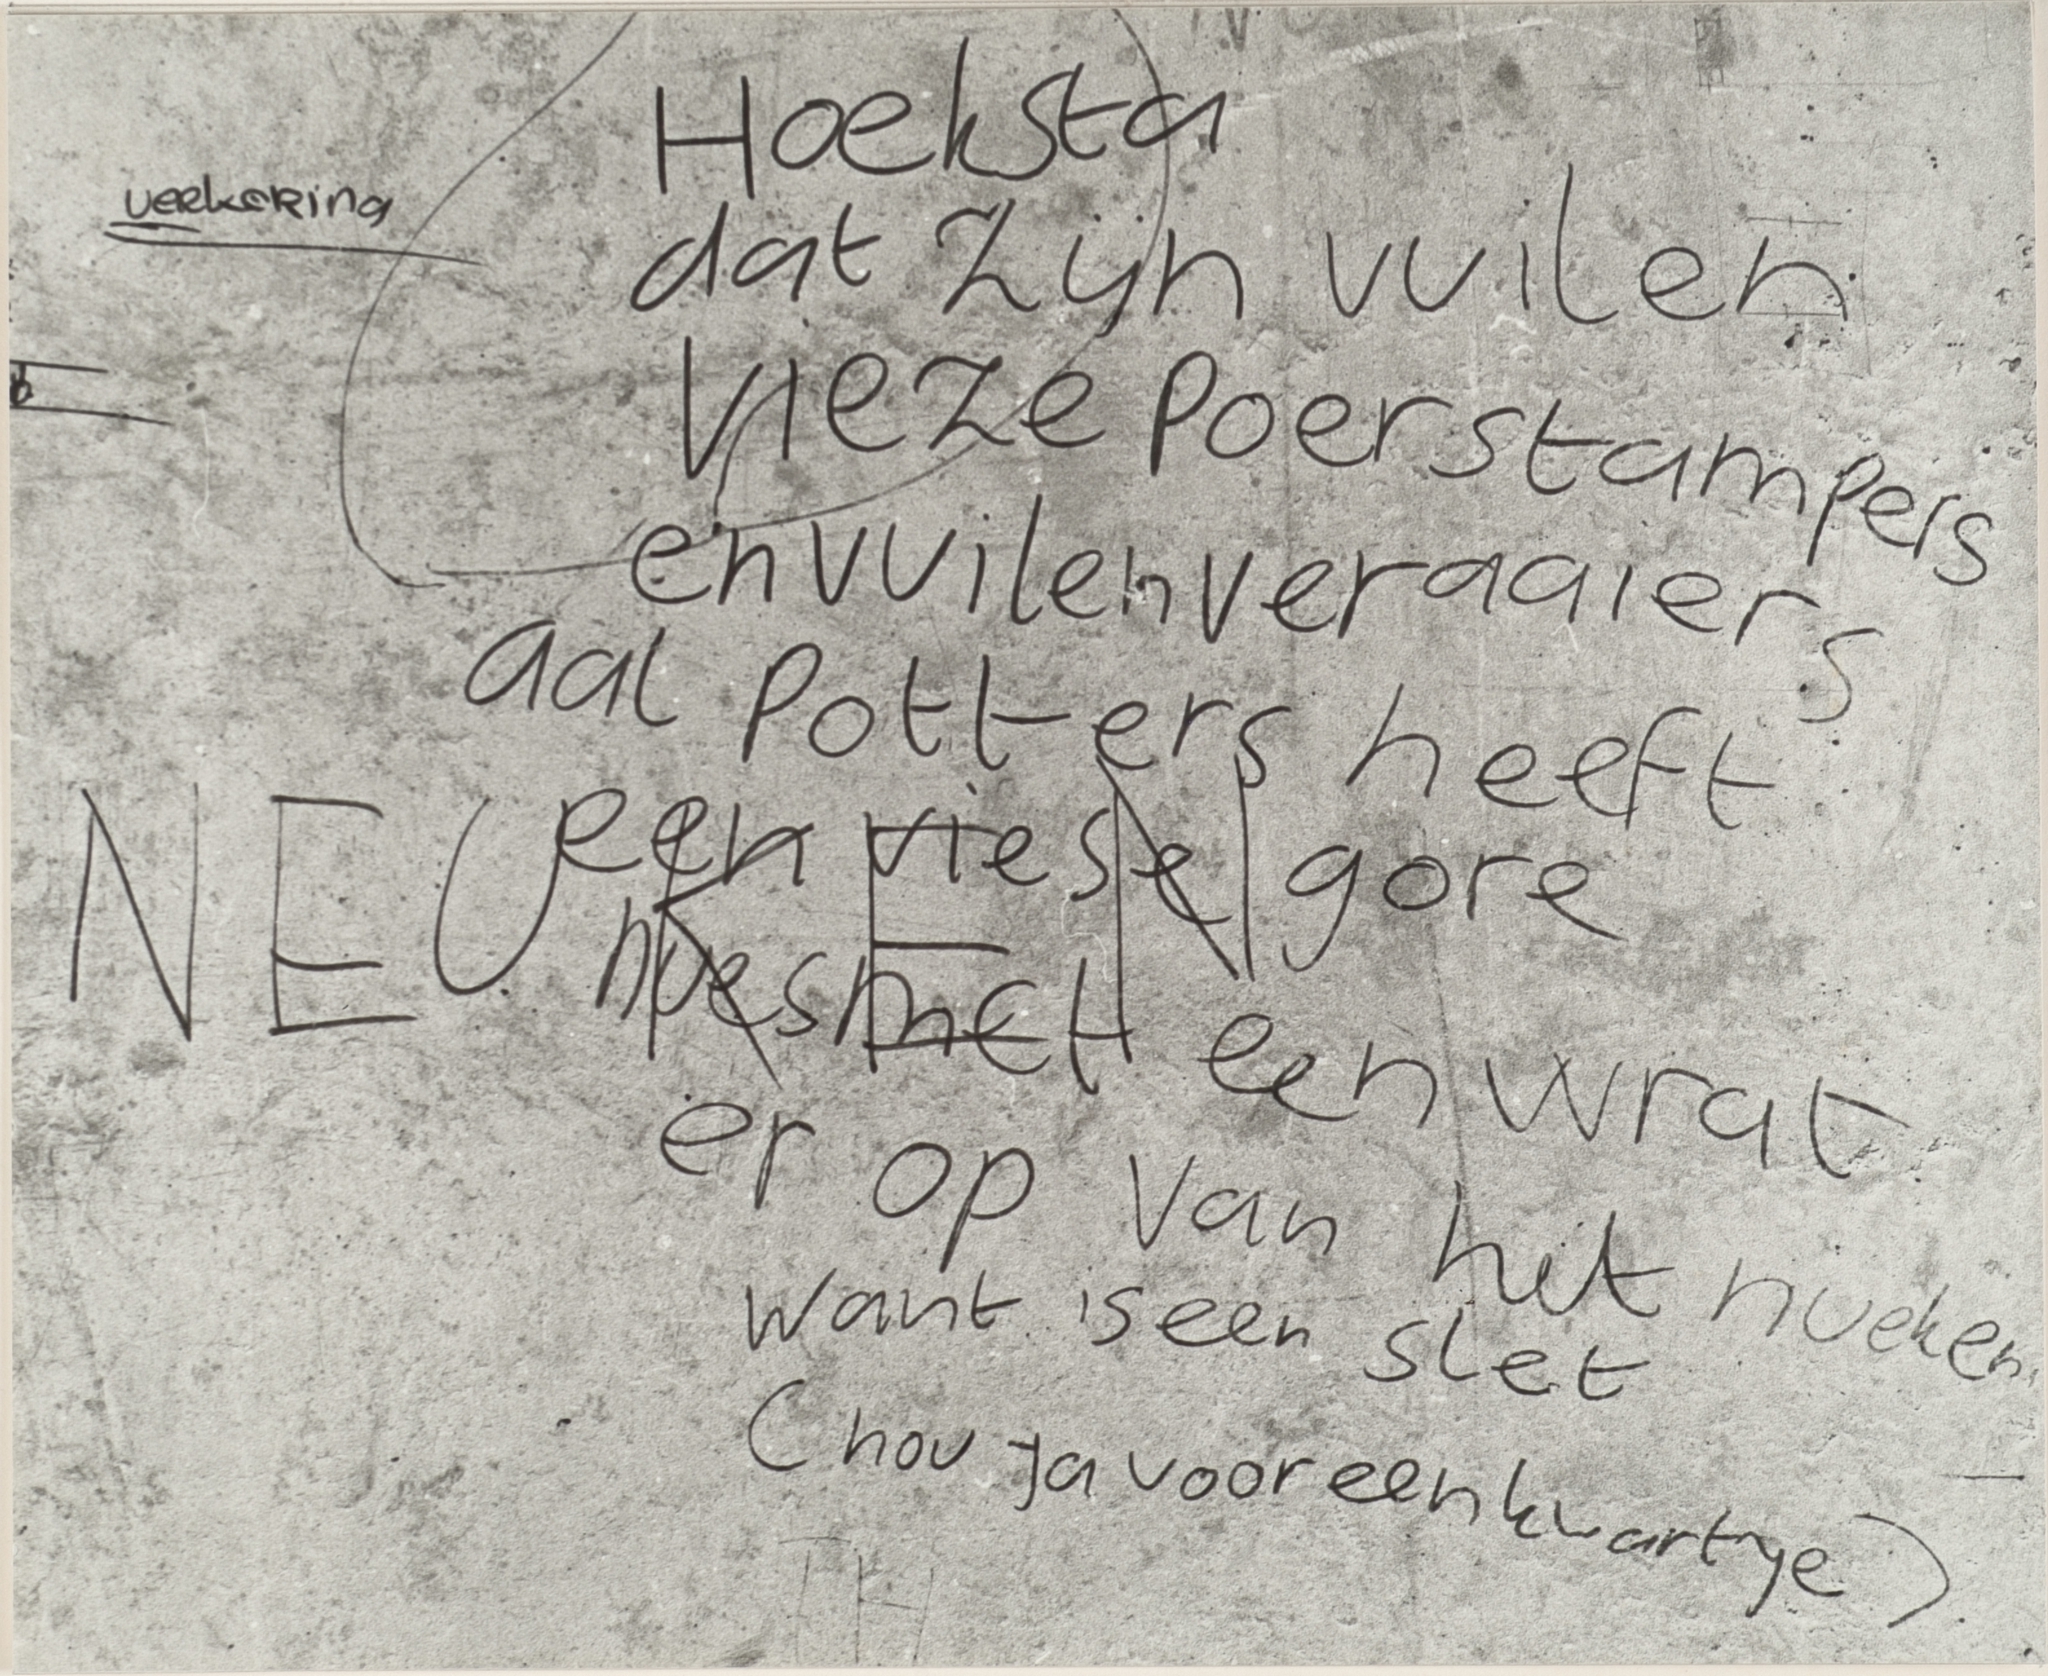 Hoeksta
verkering
dat zijn vuilen
vieze poerstampers
en vuilen veraaiers
aal potters heeft
NEUKEN
een viese gore
hoes met een wrat
er op van het nueken
want is een slet
(hou ja voor een kwartje)